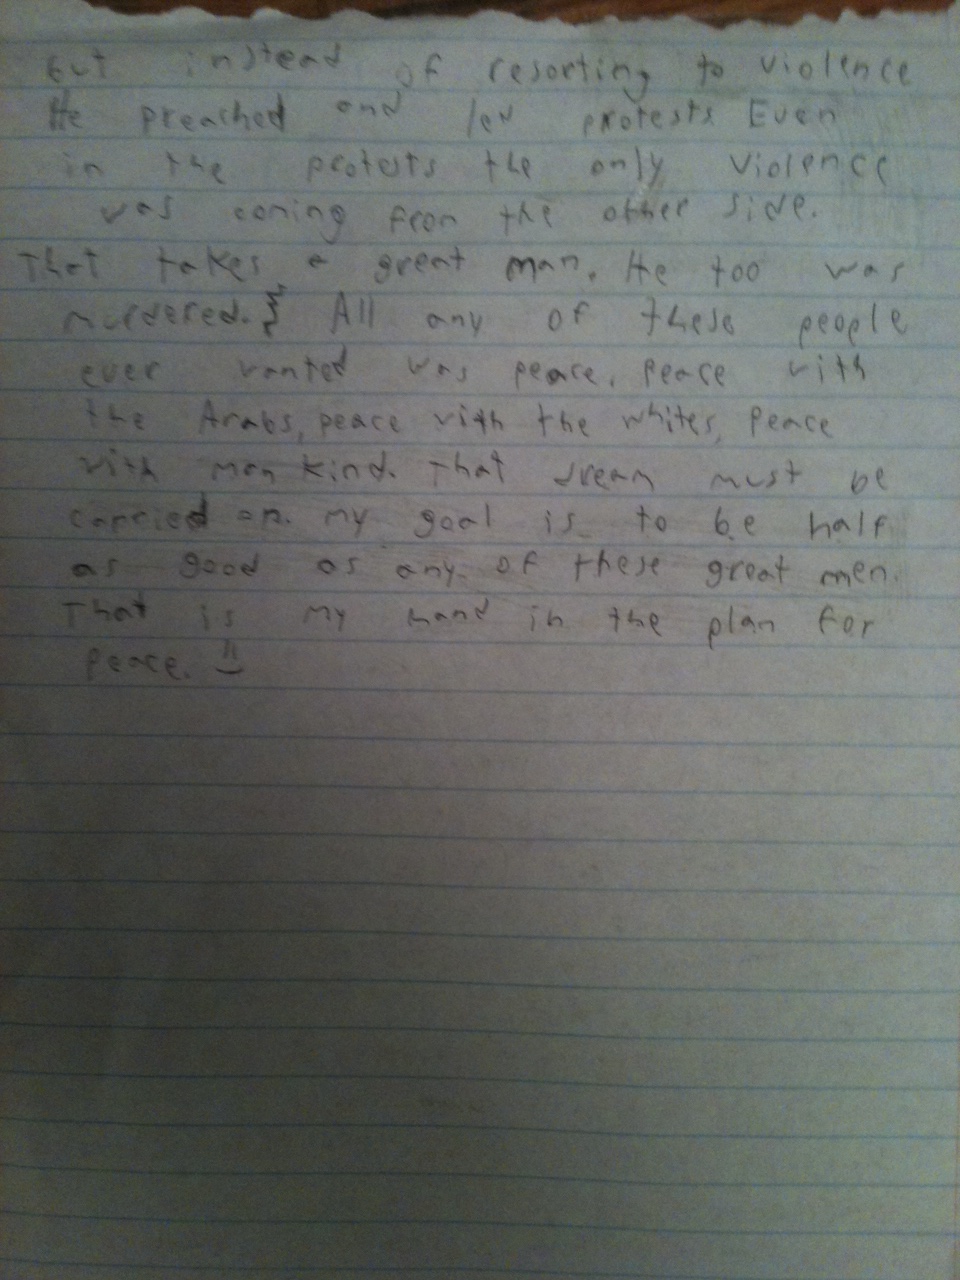 but instead of resorting to violence
He preached and led protests Even
in the protests the only violence
was coming from the other side.
That takes a great man. He too was
murdered. All any of these people
ever wanted was peace, peace with
the Arabs, peace with the whites, Peace
with man kind. That dream must be
carried on. my goal is to be half
as good as any of these great men.
That is my hand in the plan for
peace.